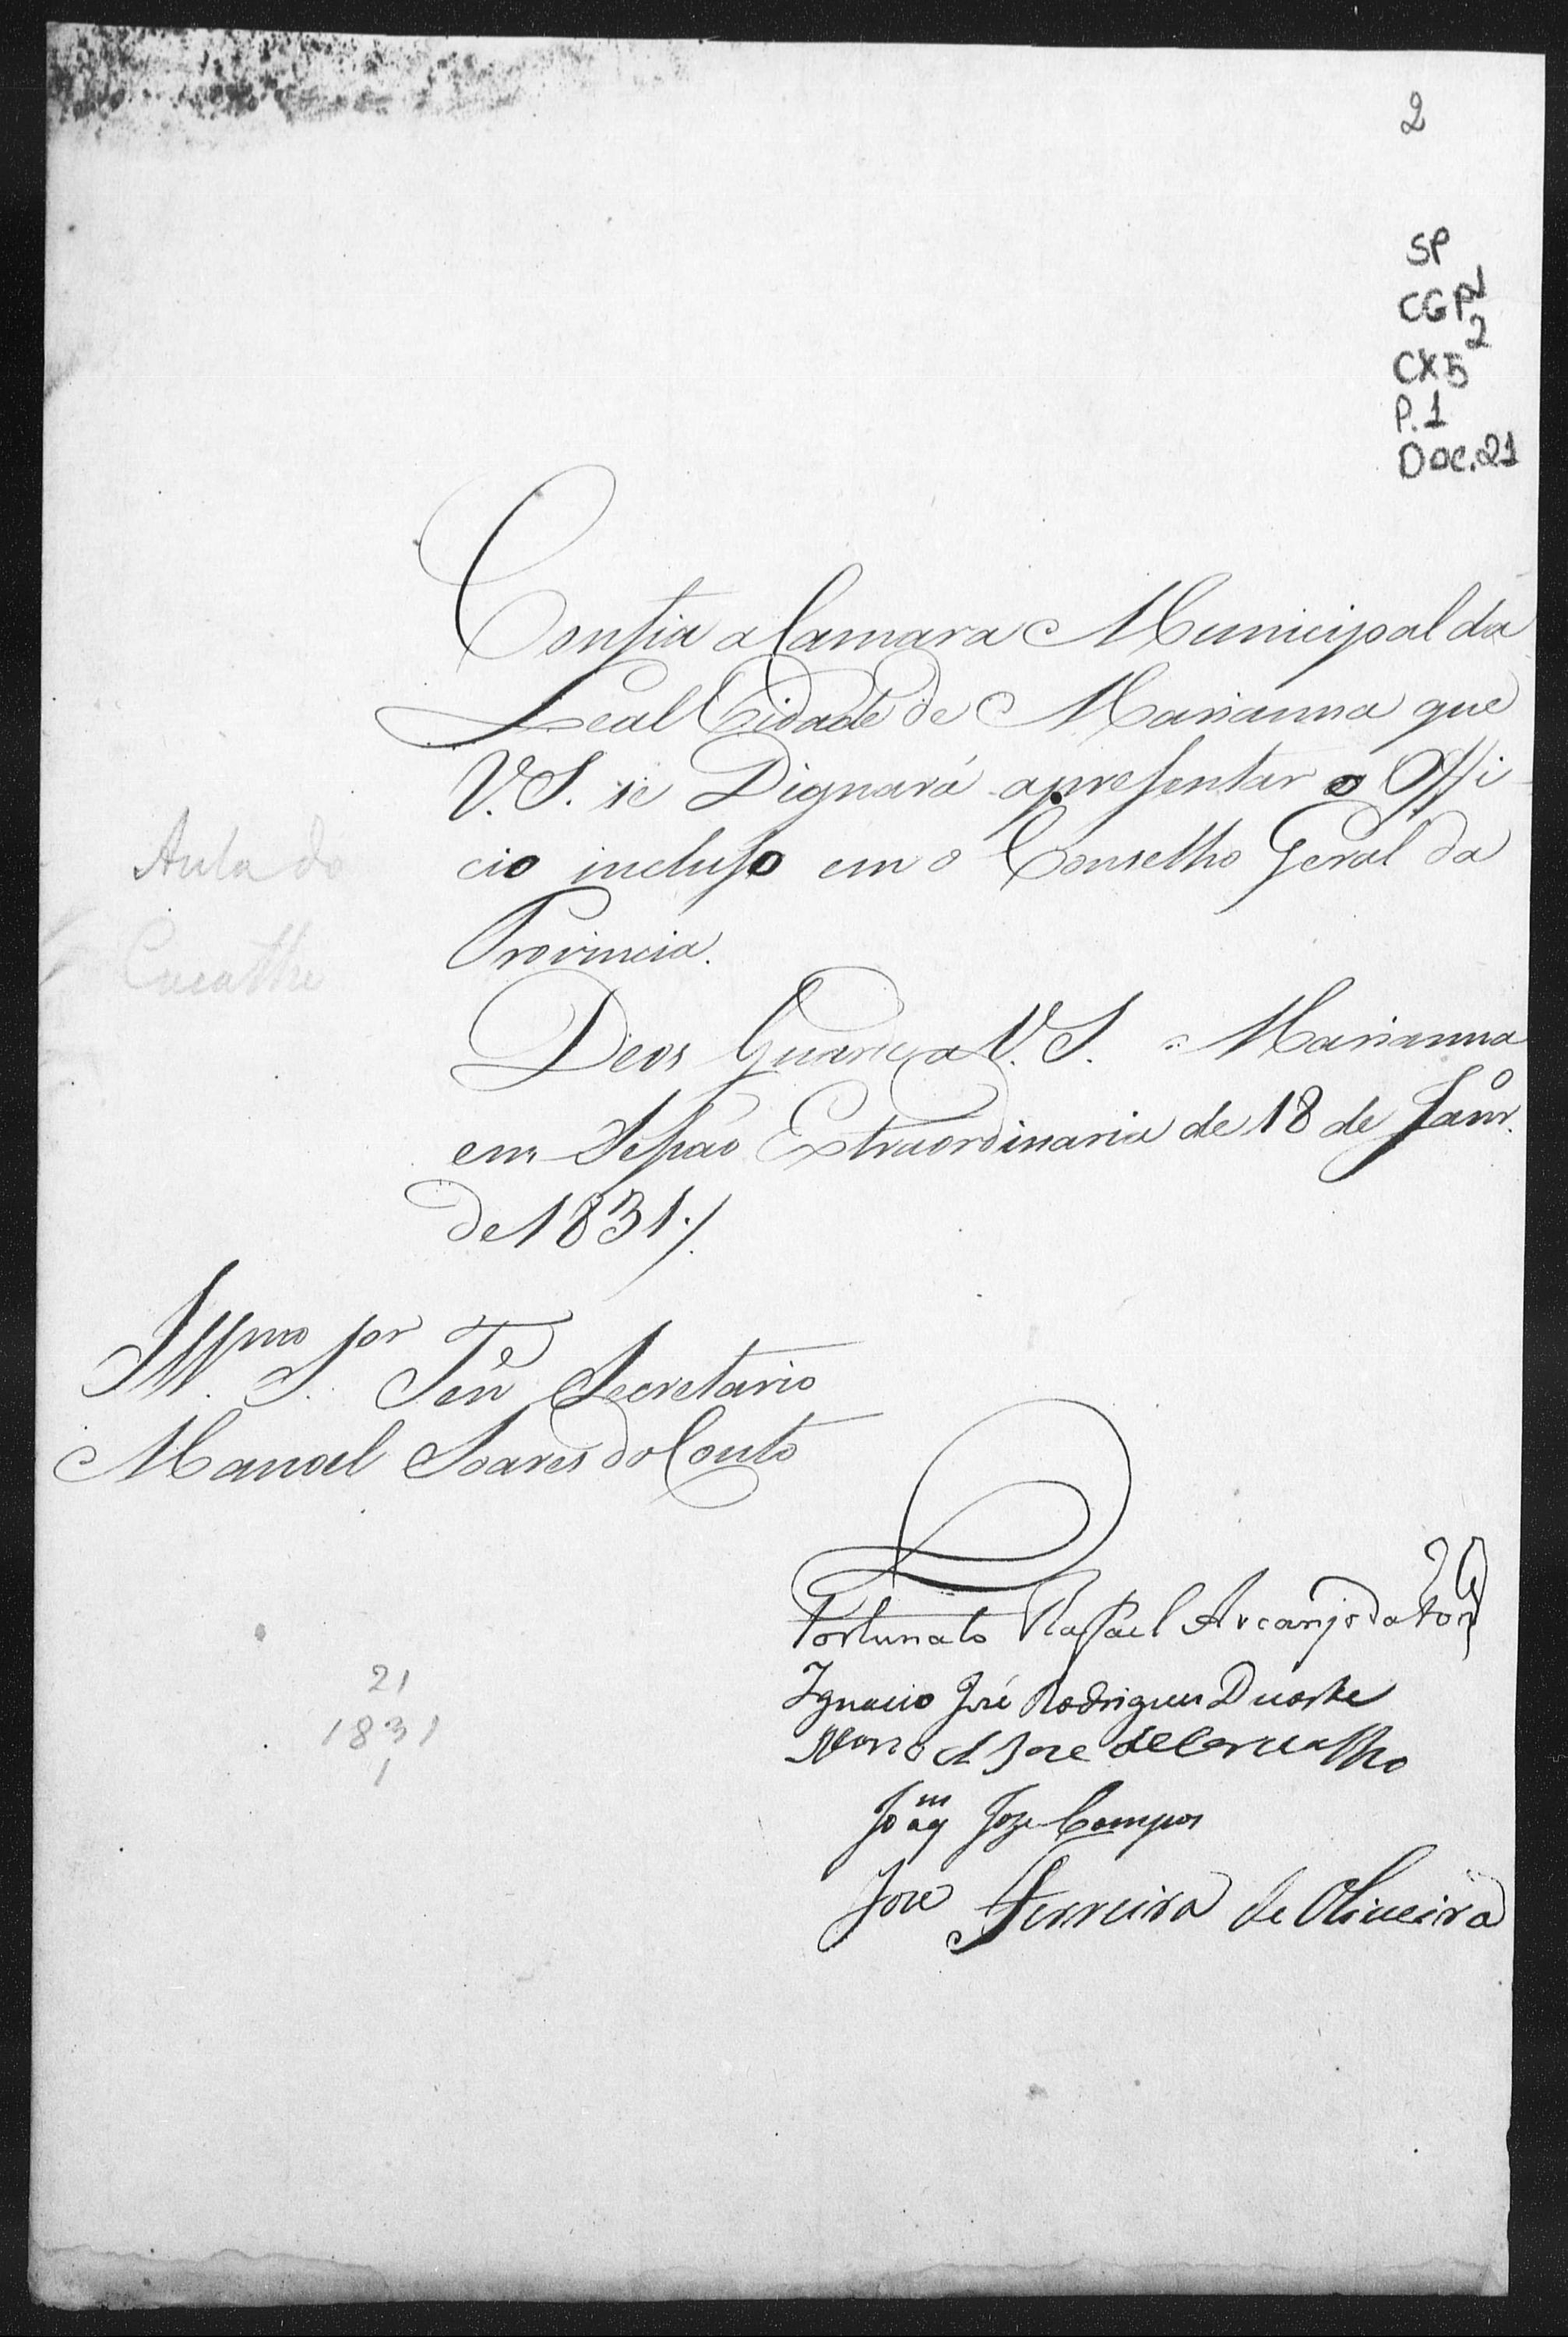 2
SP
CGP 1
2
CX5
P.1
Doc.21
Confia a Camara Municipal da
Leal Cidade de Marianna que
V.S. se Dignará apresentar o Offi-
cio incluso em o Conselho Geral da
Provincia.
Deos Guarde a V.S. Marianna
em Sessão Extraordinaria de 18 de Janr.o
de 1831./.
Aula do
Illmo Snor Tene Secretario
Manoel Soares do Couto
Fortunato Rafael Arcanjo da
Ignacio José Rodrigues Duarte
José de Carvalho
Joaqm Joze Campos
Joze Ferreira de Oliveira
21
1831
1